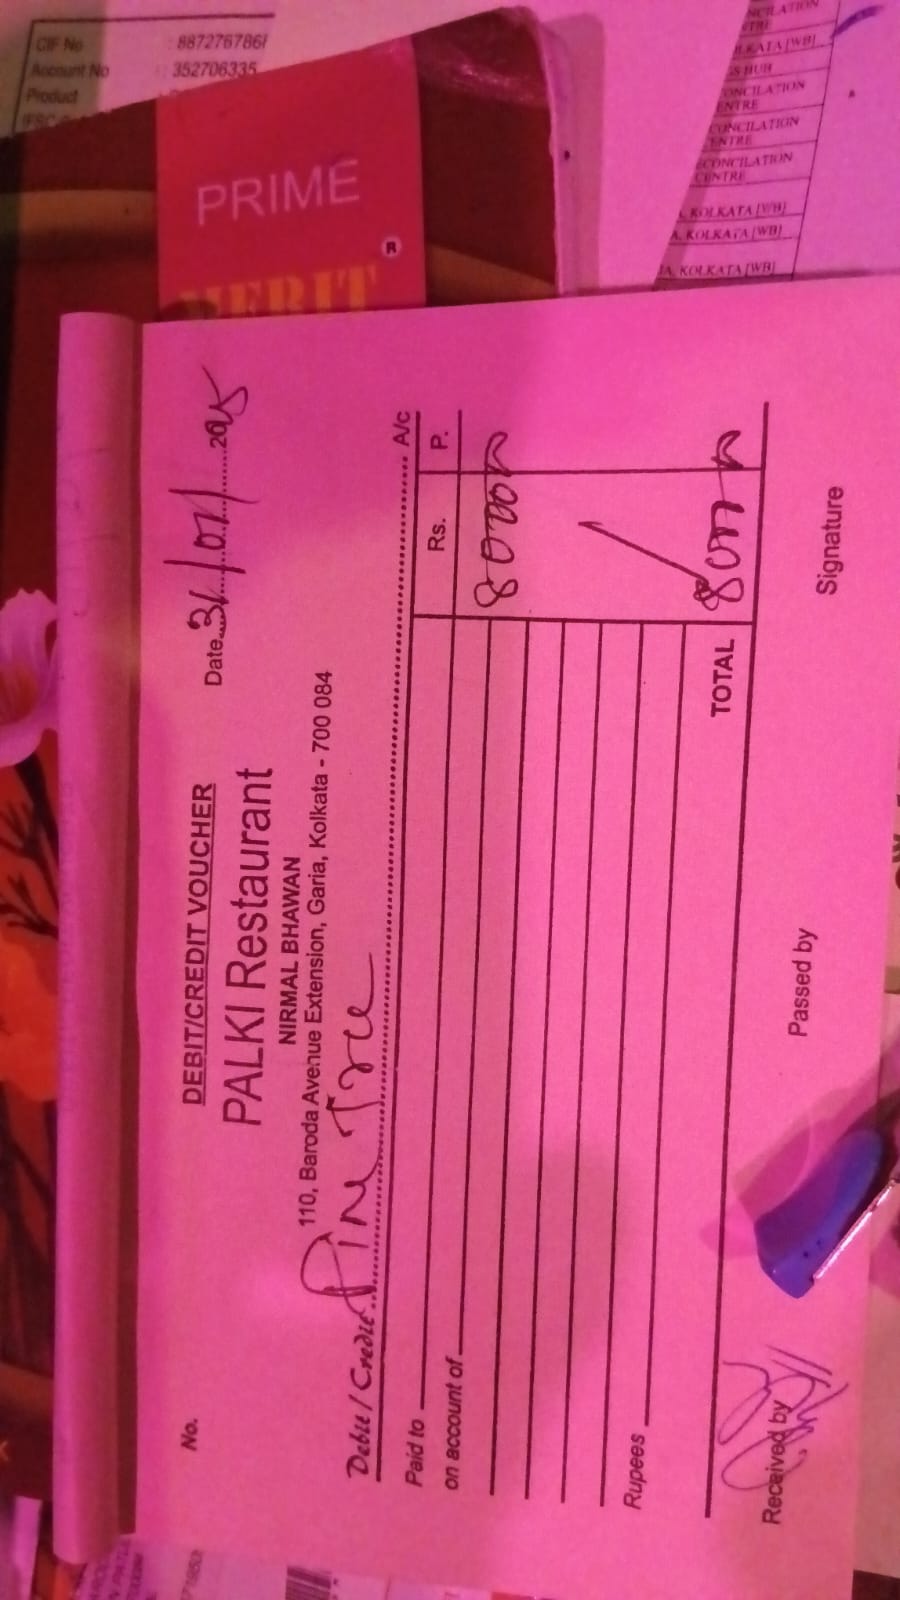 CIF No : 887276786
Account No : 352706335
Product
PRIME
MERIT
®
NCILATION
KOLKATA [WB]
GS HUB
CONCILATION
CENTRE
CONCILATION
CENTRE
RECONCILATION
CENTRE
A, KOLKATA [WB]
A, KOLKATA [WB]
IA, KOLKATA [WB]
No.
DEBIT/CREDIT VOUCHER
Date 31/07/2025
PALKI Restaurant
NIRMAL BHAWAN
110, Baroda Avenue Extension, Garia, Kolkata - 700 084
Debit / Credit Pine Tree A/c
Paid to Rs. P.
on account of
8000
Rupees
TOTAL 8000
Received by Passed by Signature